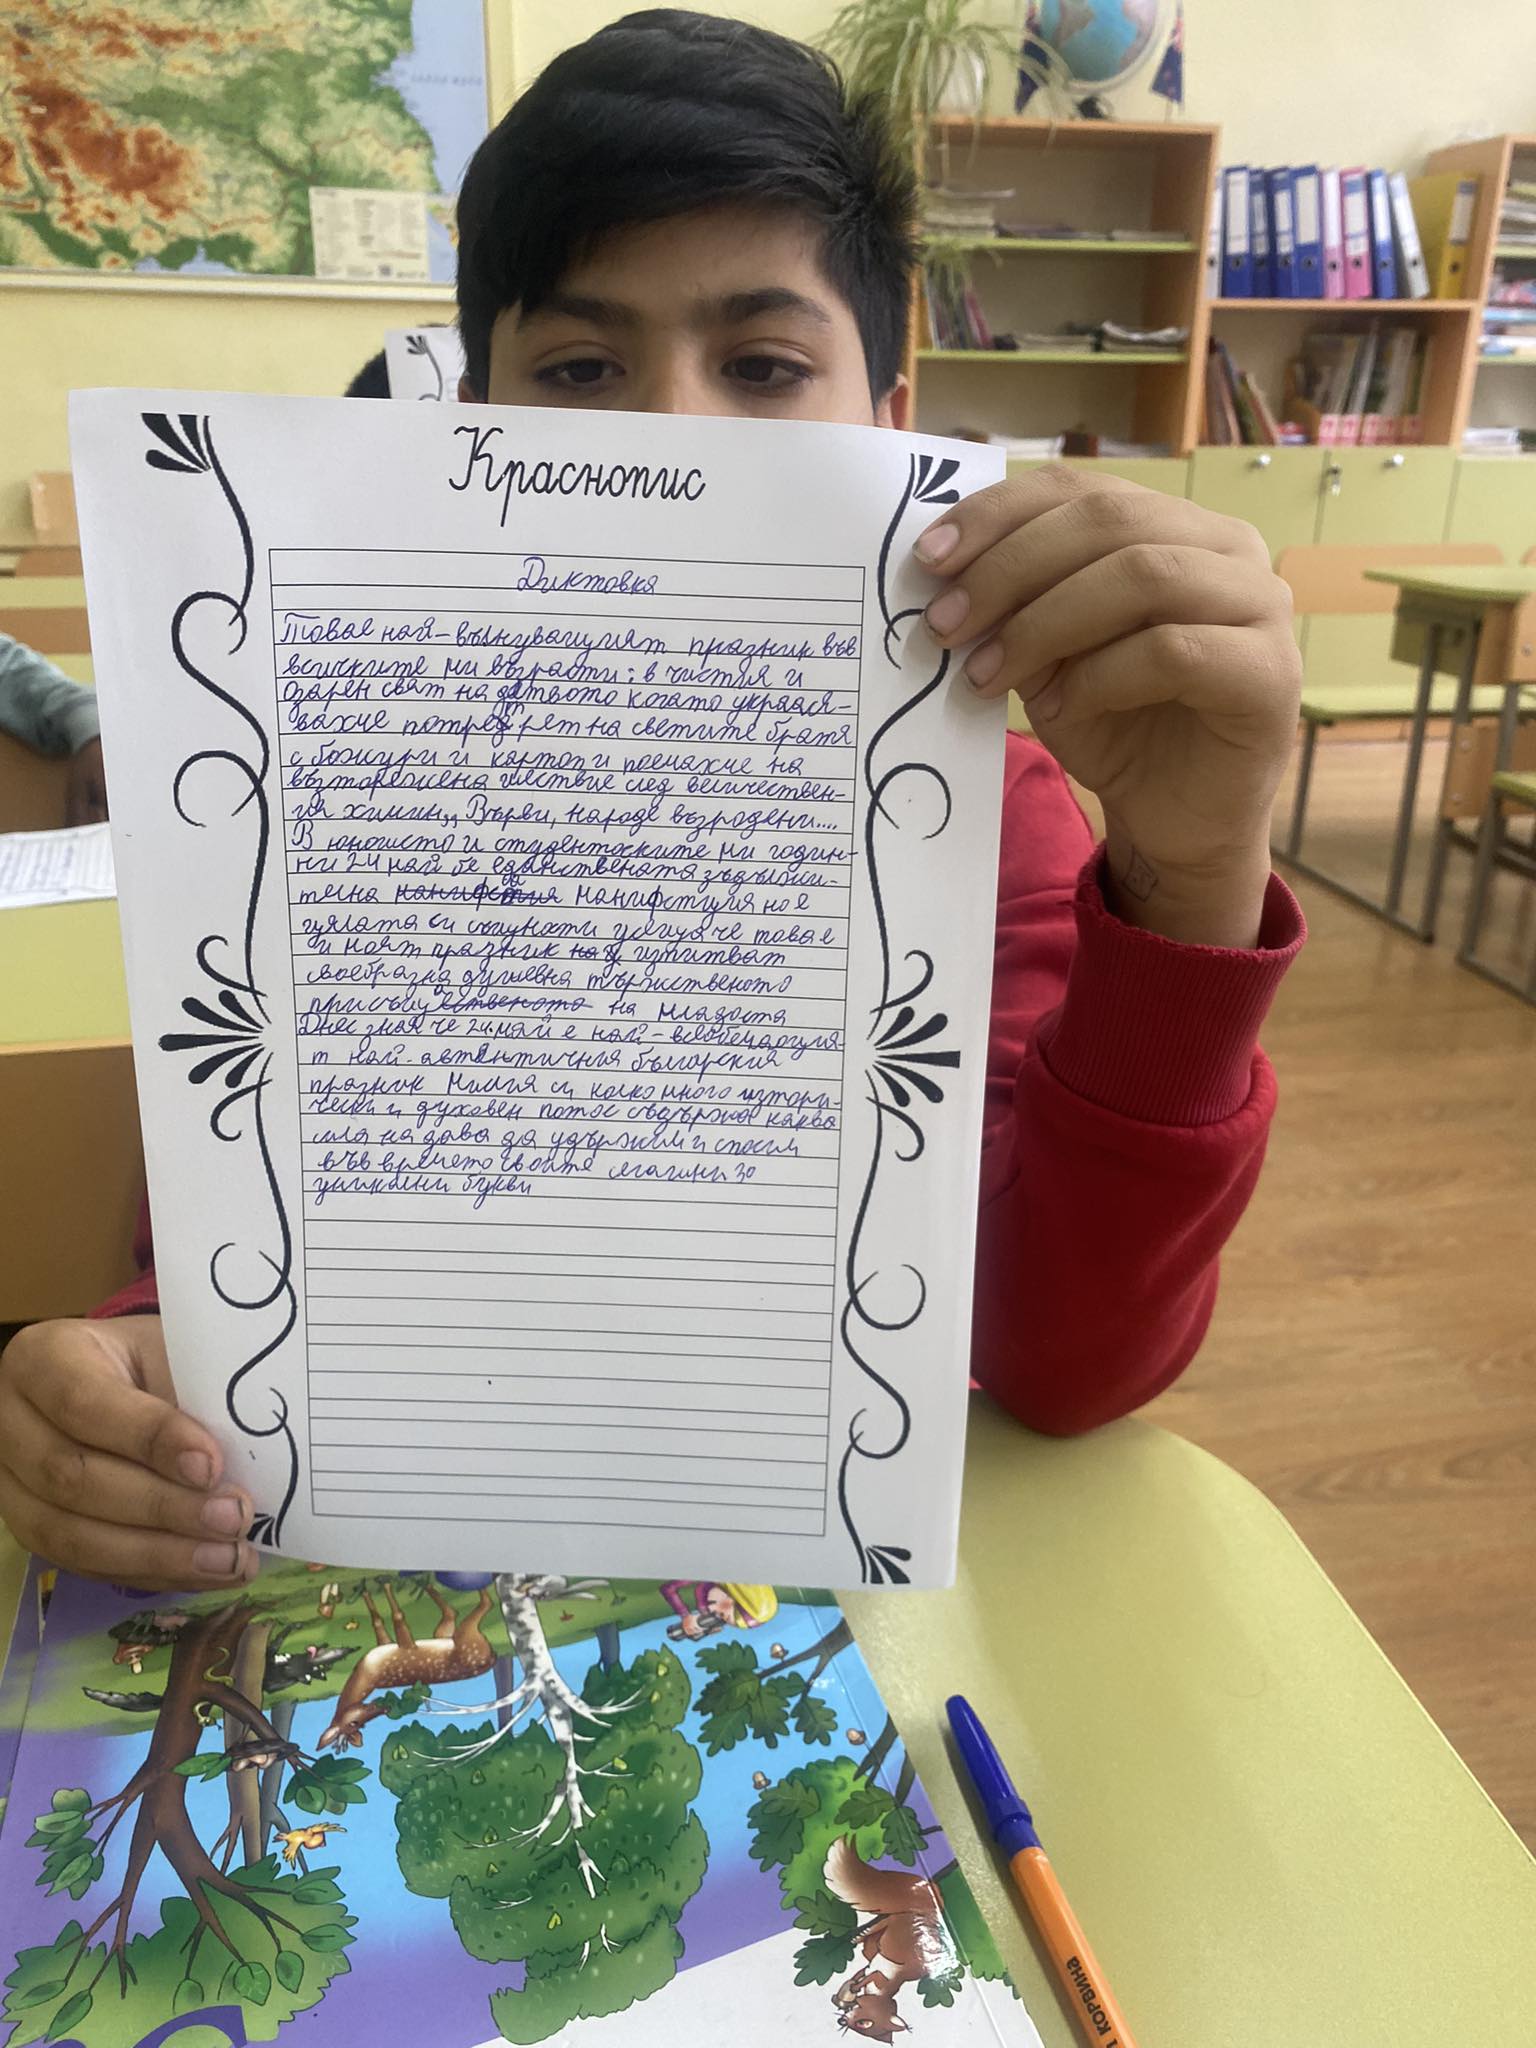 Краснопис
Диктовка
Товае най-вълнуващият празник във
всичките ми възрасти: в чистия и
озарен свят на детството когато украася-
вахме потрет на светите братя
с божури и картон и поемахме на
възторжена шествие след величествен-
ия химн,, Върви, народе възродени....
В юношесто и студентоските ми годин-
ни 24 май бе единствената зъдължи-
телна манифстция но е
цялата си същности усеща че това е
и моят празник изпитват
своебразна душевна тържественото
присъщ на младоста
Днес зная че 24. май е най-всеобещаощия-
т най-автентичния българския
празник Мисля си колко много изтори-
чески и духовен потос съдържа каква
сила на дава да удържим и спасим
във времето своите
уникални букви
1 КОРВИНА